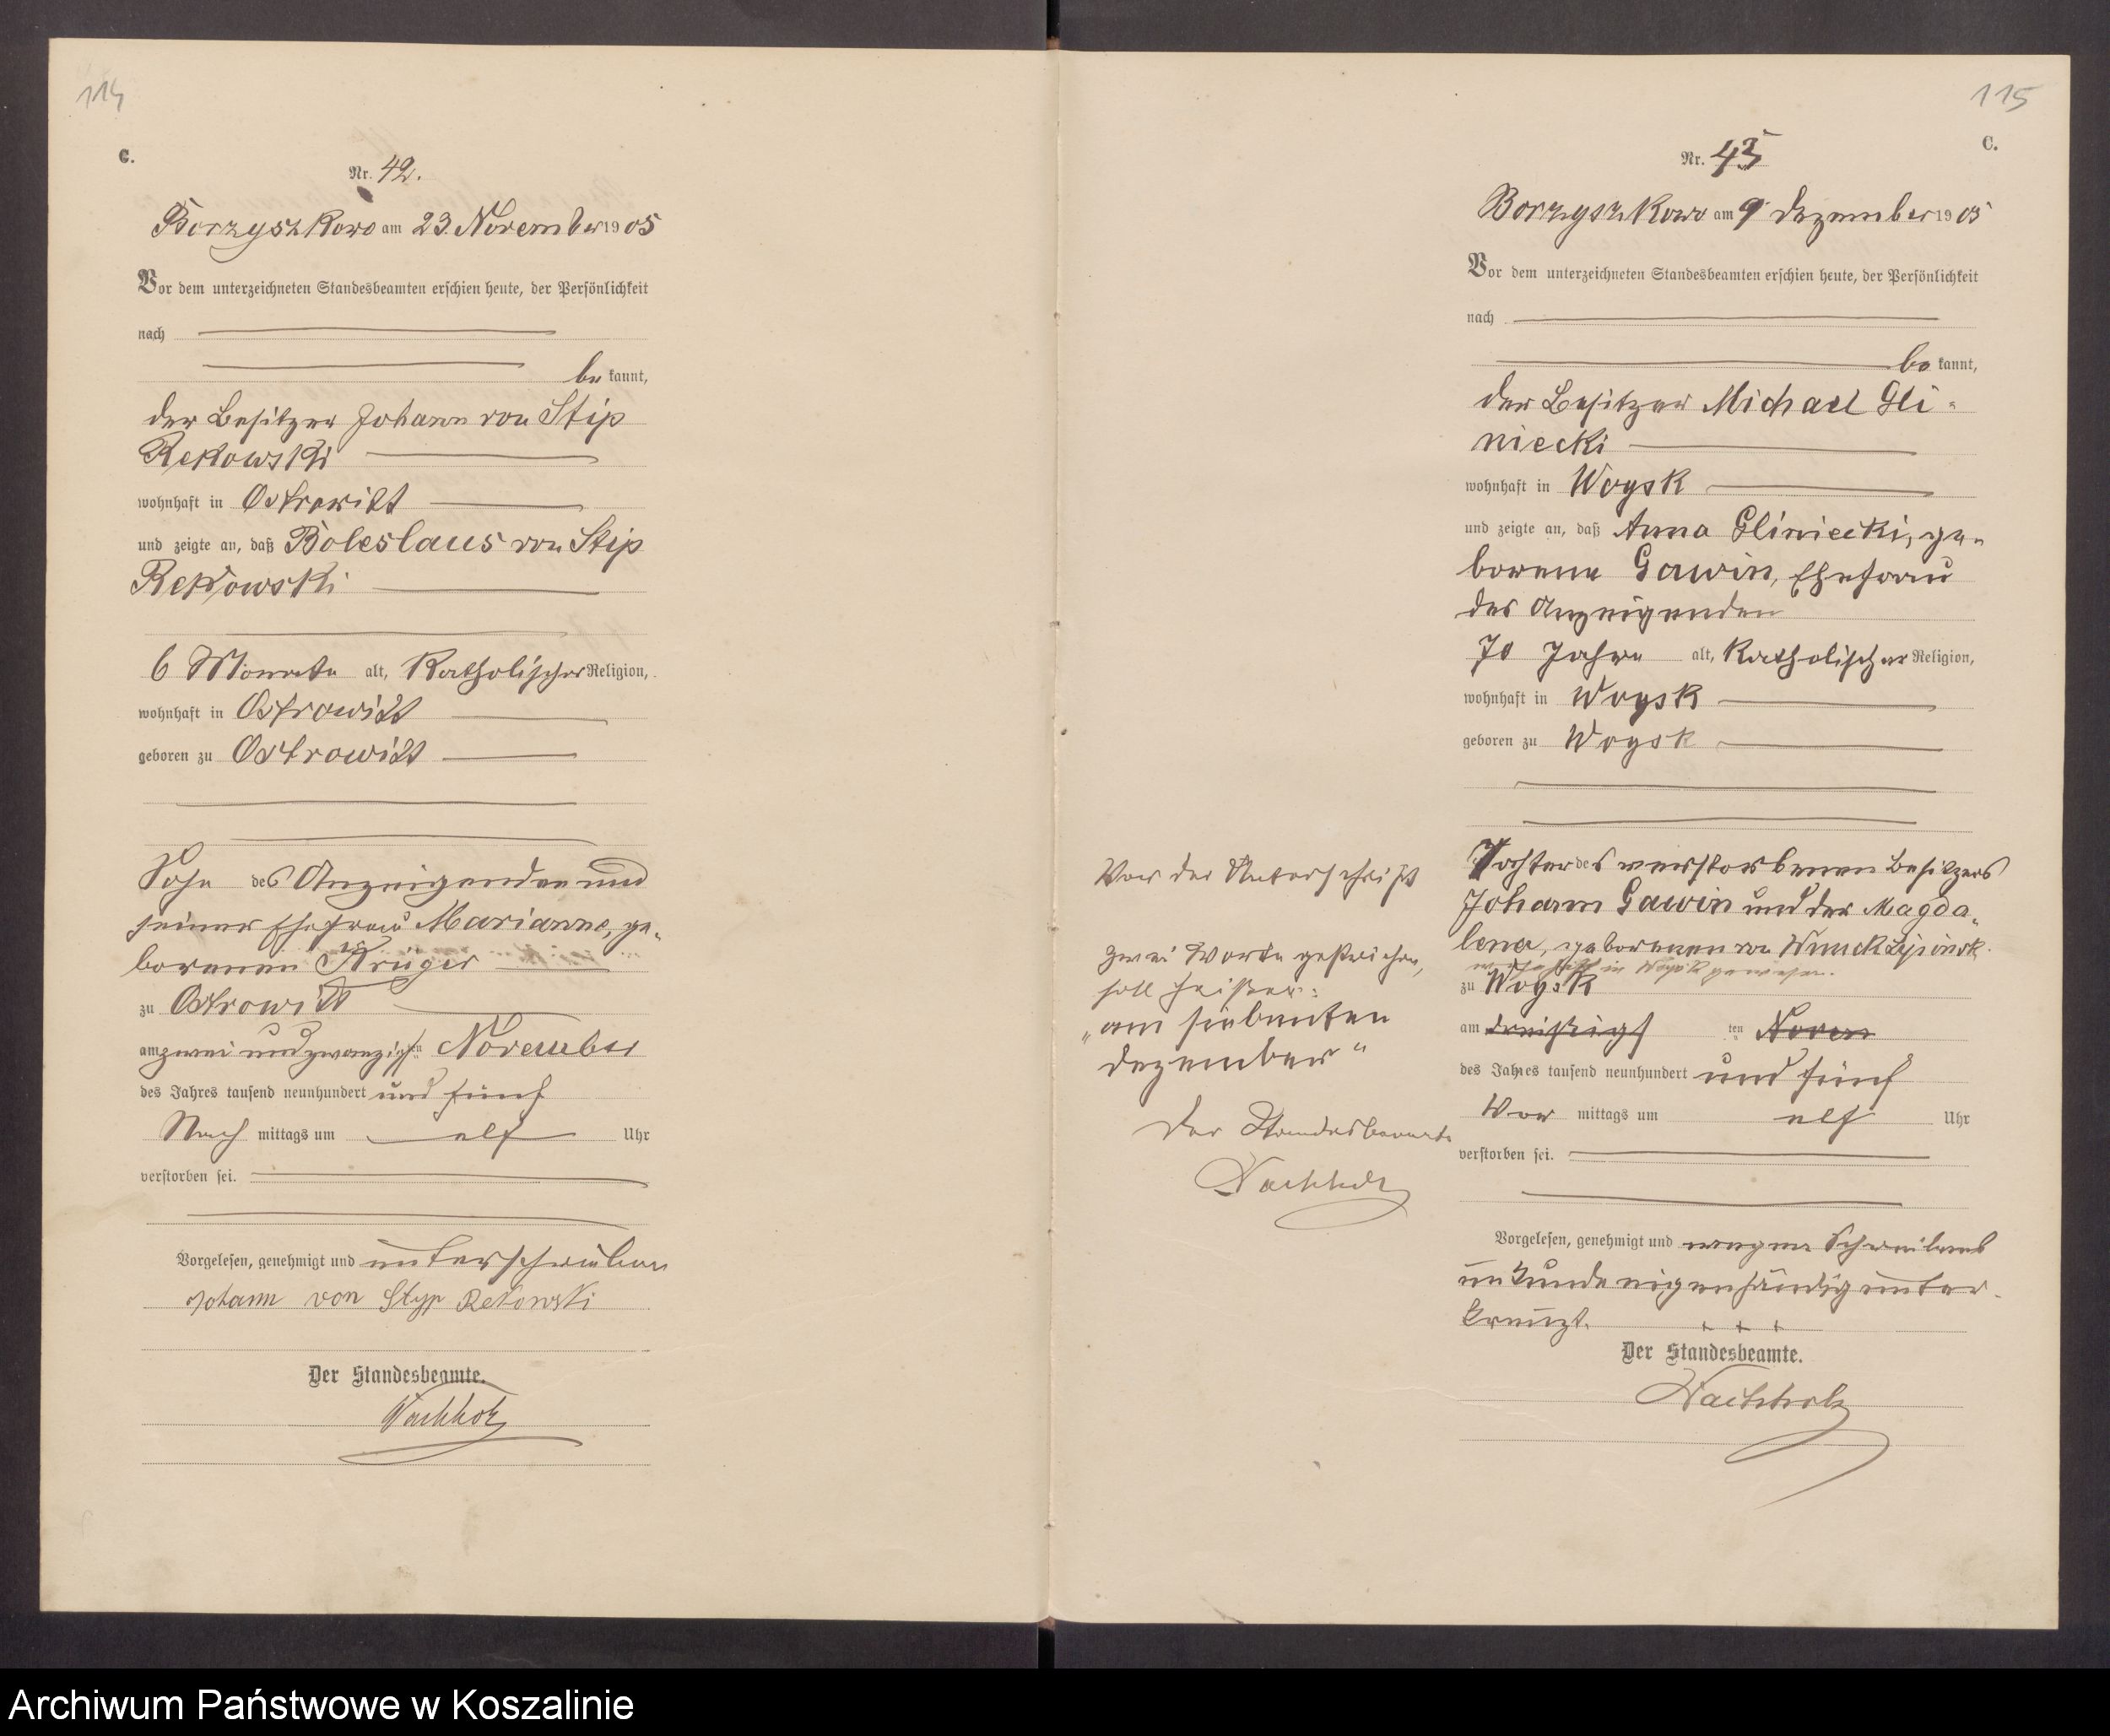 114
C.
Nr. 42.
Borzyszkowo am 23. November 1905
Vor dem unterzeichneten Standesbeamten erschien heute, der Persönlichkeit
nach
be kannt,
der Besitzer Johann von Stip
Rekowski
wohnhaft in Ostrowitt
und zeigte an, daß Boleslaus von Stip
Rekowski
6 Monate alt, katholischer Religion,
wohnhaft in Ostrowitt
geboren zu Ostrowitt
Sohn des Anzeigenden und
seiner Ehefrau Marianne, ge-
borenen Krüger
zu Ostrowitt
am zwei und zwanzigsten November
des Jahres tausend neunhundert und fünf
Nach mittags um elf Uhr
verstorben sei.
Vorgelesen, genehmigt und unterschrieben
Johann von Styp Rekowski
Der Standesbeamte.
Wachholz
115
C.
Nr. 43
Borzyszkowo am 9 Dezember 1905
Vor dem unterzeichneten Standesbeamten erschien heute, der Persönlichkeit
nach
be kannt,
der Besitzer Michael Gli-
niecki
wohnhaft in Woysk
und zeigte an, daß Anna Gliniecki, ge-
borene Gawin, Ehefrau
des Anzeigenden
70 Jahre alt, katholischer Religion,
wohnhaft in Woysk
geboren zu Woysk
Tochter des verstorbenen Besitzers
Johann Gawin und der Magda-
lena, geborenen von Wnuck Lipinsk.
wohnhaft in Woysk gewesen.
zu Woysk
am dreißigs ten Novem
des Jahres tausend neunhundert und fünf
Vor mittags um elf Uhr
verstorben sei.
Vorgelesen, genehmigt und wegen Schreibens
unkunde eigenhändig unter-
kreuzt. + + +
Der Standesbeamte.
Wachholz
Vor der Unterschrift
zwei Worte gestrichen,
soll heißen:
"am siebenten
Dezember"
Der Standesbeamte
Wachholz
Archiwum Państwowe w Koszalinie